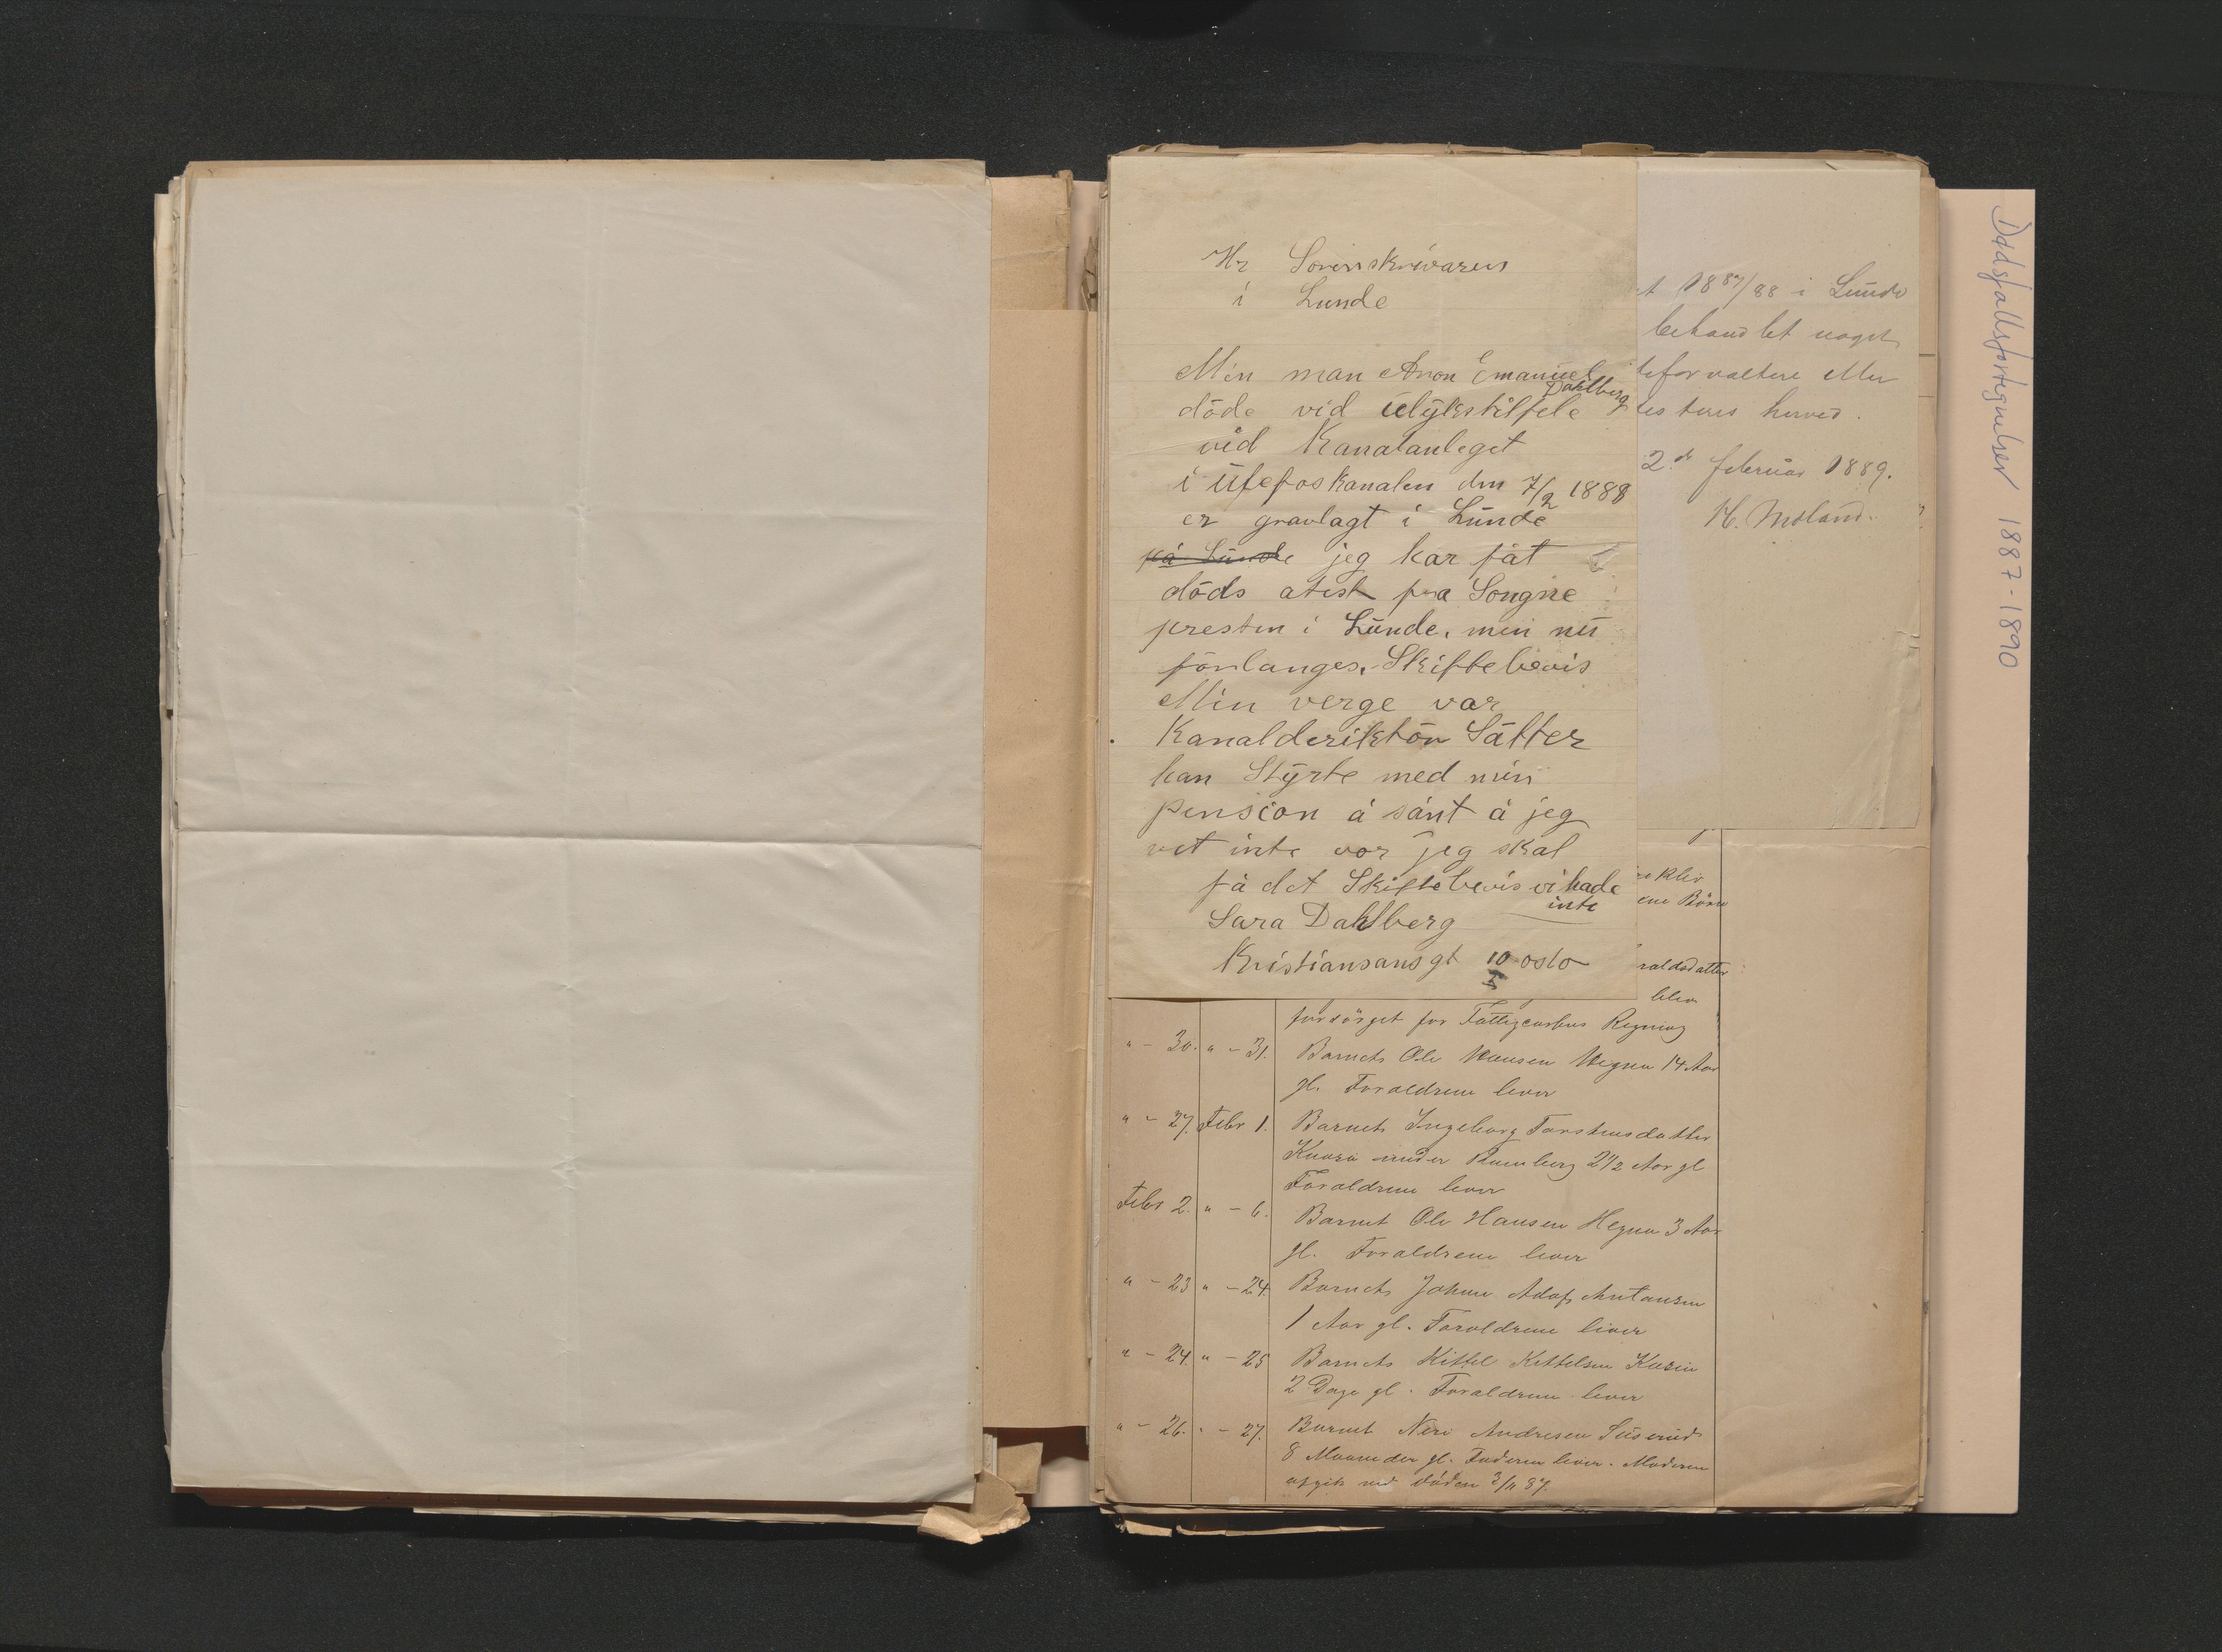 Hr Sorinskrivaren
i Lunde
Min man Aron Emanuel
Dahlberg
döde vid Ulykstilfele
vid Kanalanleget
i Ulefoskanalen den 7/2 1888
er gravlagt i Lunde
på Lunde jeg har fåt
döds atest fra Songne
presten i Lunde, men nu
förlanges. Skiftebevis
Min verge var
Kanalderiktör Sätter
han Styrte med min
pension å sånt å jeg
vet inte vor jeg skal
få det Skiftebevis vi hade
inte
Sara Dahlberg
Kristiansansgt 10 oslo
5
t 1887/88 i Lunde
behandlet noget
teforvaltere Mer
testeres herved.
2.de februar 1889.
H. Moland.
ene Börn
raldsdatter
blev
forsörget for Fattigcassens Regning
" - 30. " - 31. Barnet Ole Hansen Hegna 14 Aar
gl. Forældrene lever
" - 27. Febr 1. Barnet Ingeborg Torstensdatter
under Romberg 2 1/2 Aar gl
Forældrene lever
Febr 2. " - 6. Barnet Ole Hansen Hegna 3 Aar
gl. Forældrene lever
" - 23 " - 24. Barnet Johan Adof Antansen
1 Aar gl. Forældrene lever
" - 24. " - 25 Barnet Kittel Kettelsen Kaasin
2 Dage gl. Forældrene lever
" - 26. " - 27. Barnet Neri Andresen
8 Maaneder gl. Faderen lever. Moderen
afgik ved döden 3/11 87.
Dødsfallsfortegnelser 1887-1890